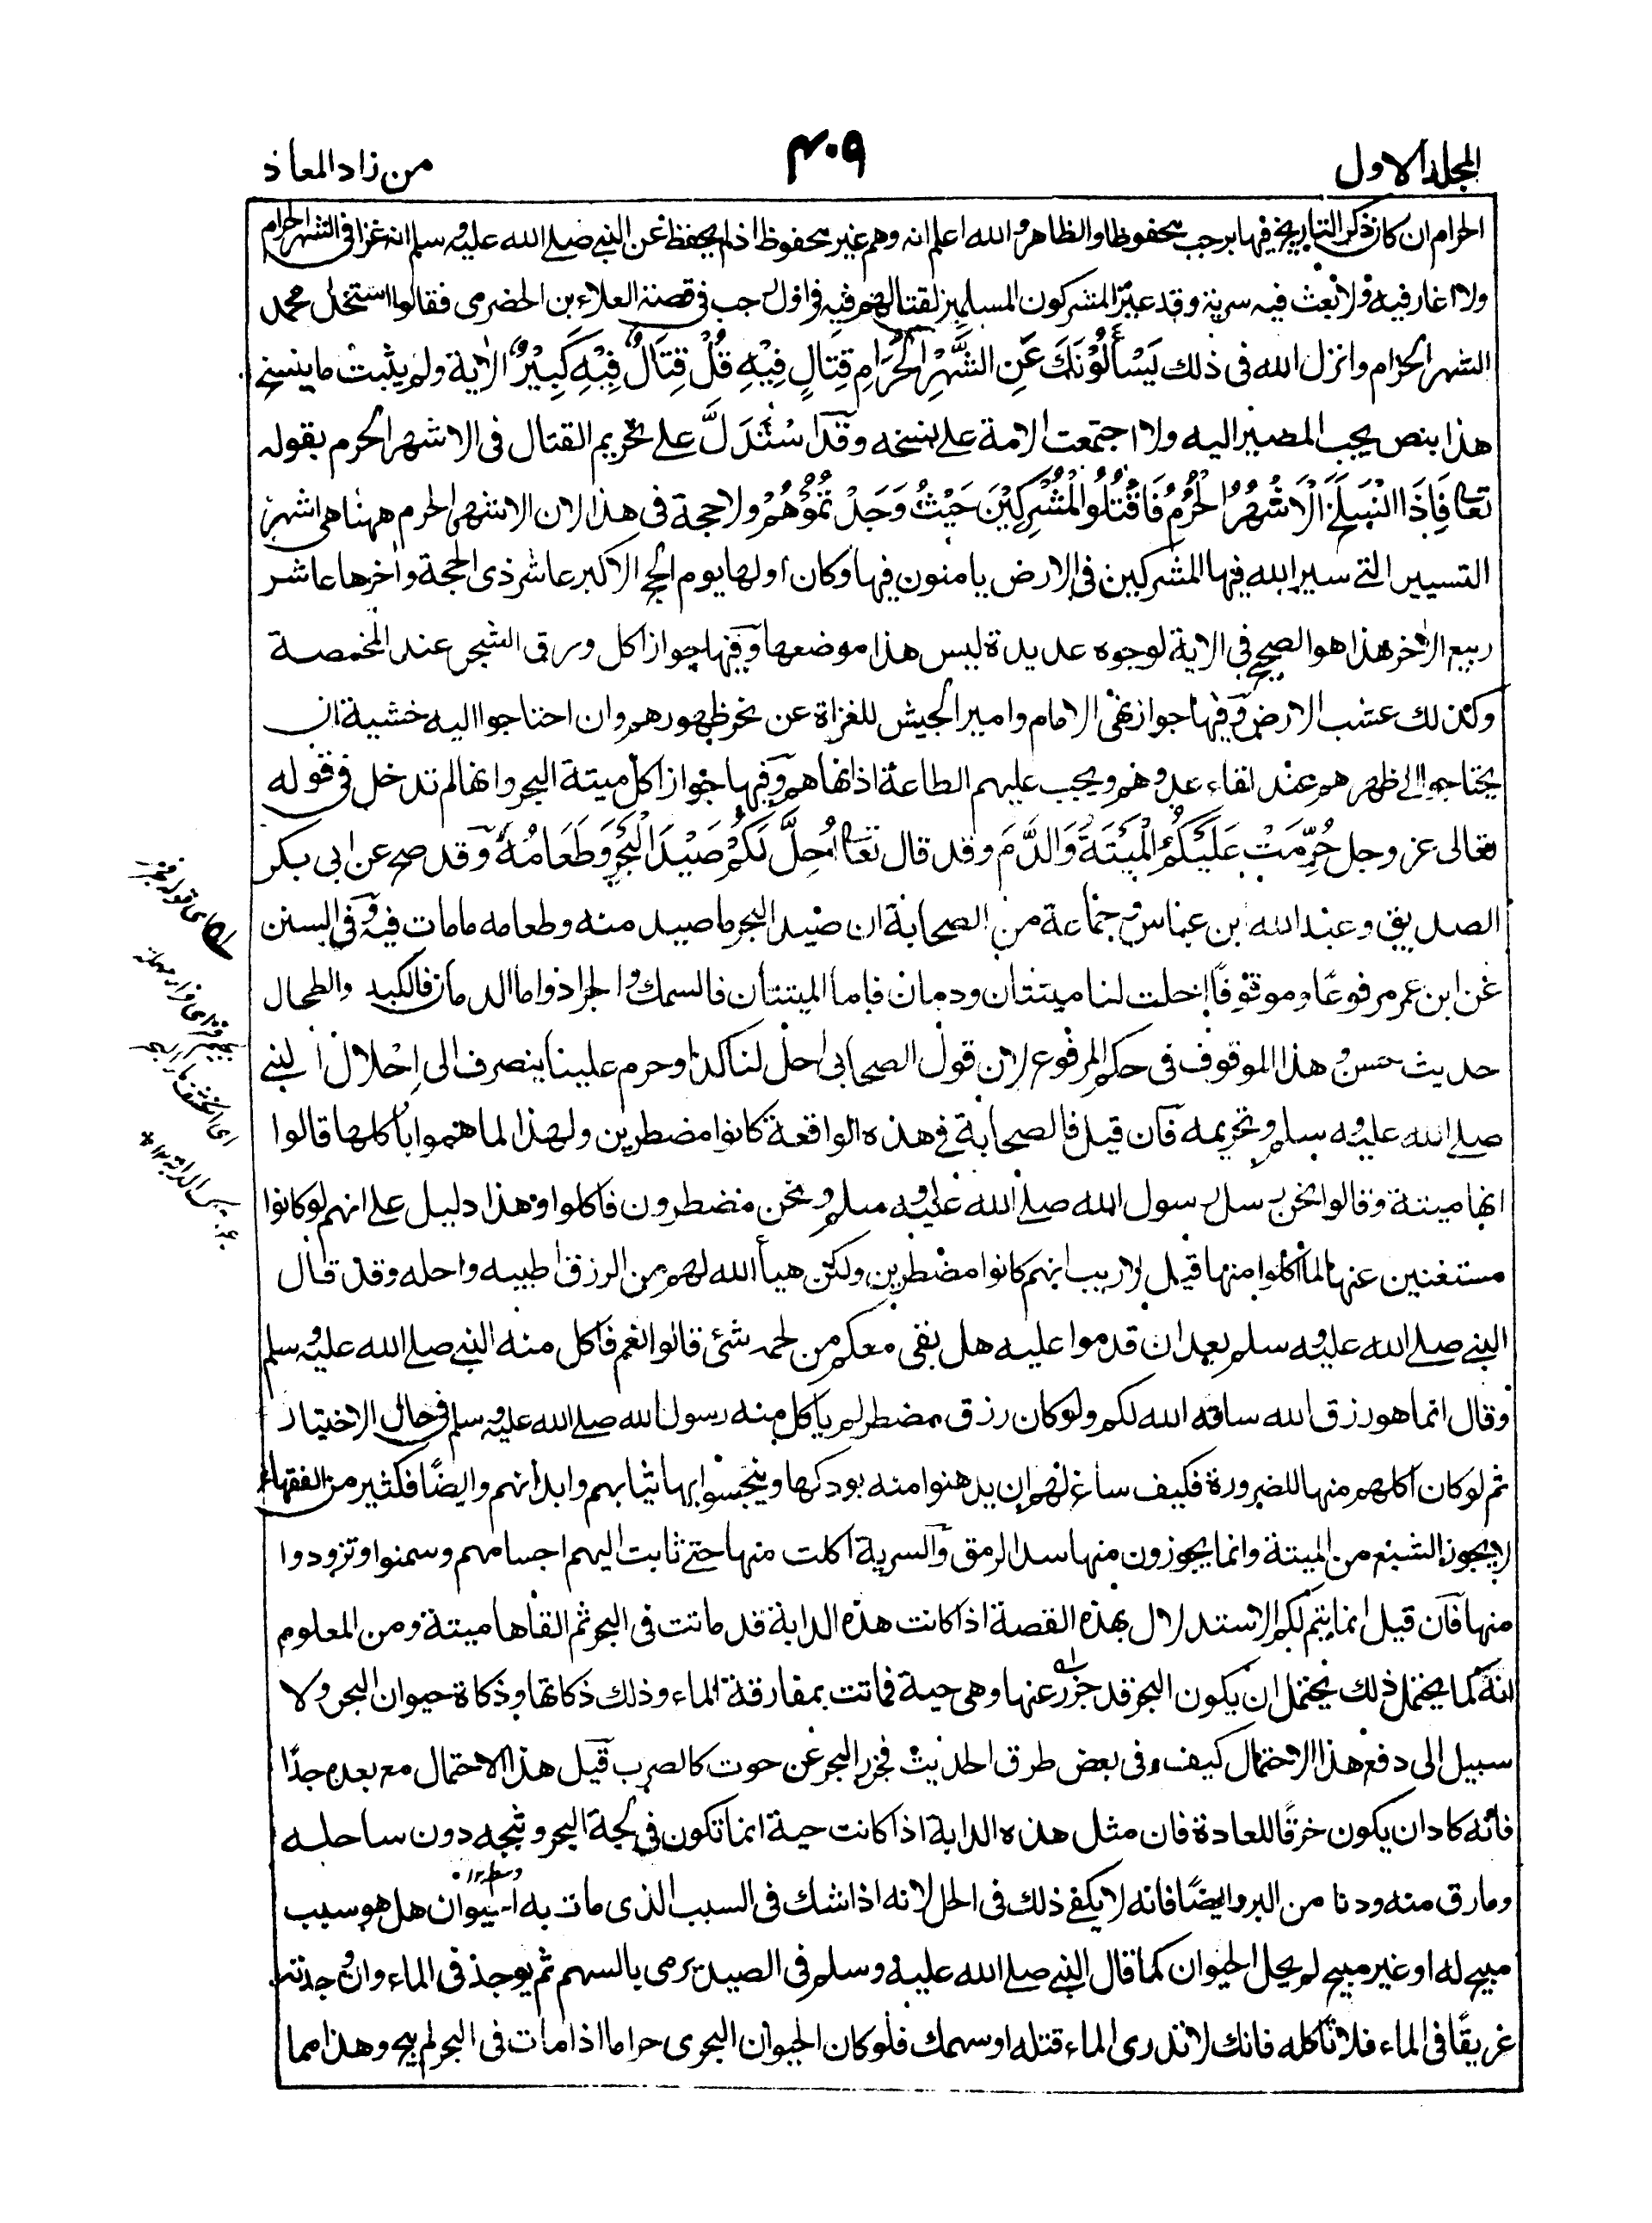 المجلد الاول
٤٠٩
من زاد المعاد
الحرام ان كان ذكر التاريخ فيها برجب محفوظا والظاهر والله اعلم انه وهم غير محفوظ اذ لم يحفظ عن النبي صلى الله عليه وسلم انه غزا في الشهر الحرام
ولا اغار فيه ولا بعث فيه سرية وقد عير المشركون المسلمين لقتالهم فيه في اول رجب في قصة العلاء بن الحضرمي فقالوا استحل محمد
الشهر الحرام وانزل الله في ذلك يَسْأَلُوْنَكَ عَنِ الشَّهْرِ الْحَرَامِ قِتَالٍ فِيْهِ قُلْ قِتَالٌ فِيْهِ كَبِيْرٌ الآية ولم يثبت ما ينسخ
هذا بنص يجب المصير اليه ولا اجتمعت الامة على نسخه وقد اسْتُدَلَّ على تحريم القتال في الاشهر الحرم بقوله
تعا فَاِذَا انْسَلَخَ الْاَشْهُرُ الْحُرُمُ فَاقْتُلُوا الْمُشْرِكِيْنَ حَيْثُ وَجَدْتُمُوْهُمْ ولا حجة في هذا لان الاشهر الحرم ههنا هي اشهر
التسيير التي سير الله فيها المشركين في الارض يامنون فيها وكان اولها يوم الحج الاكبر عاشر ذي الحجة وآخرها عاشر
ربيع الآخر هذا هو الصحيح في الآية لوجوه عديدة ليس هذا موضعها وفيها جواز اكل ورق الشجر عند المخمصة
وكذلك عشب الارض وفيها جواز نهي الامام وامير الجيش للغزاة عن نحر ظهورهم وان احتاجوا اليه خشية ان
يحتاجوا الى ظهرهم عند لقاء عدوهم ويجب عليهم الطاعة اذا نهاهم وفيها جواز اكل ميتة البحر وانها لم تدخل في قوله
تعالى عز وجل حُرِّمَتْ عَلَيْكُمُ الْمَيْتَةَ وَالدَّمَ وقد قال تعا اُحِلَّ لَكُمْ صَيْدَ الْبَحْرِ وَطَعَامُهُ وقد صح عن ابي بكر
الصديق وعبد الله بن عباس وجماعة من الصحابة ان صيد البحر ما صيد منه وطعامه ما مات فيه وفي السنن
عن ابن عمر مرفوعًا وموقوفًا احلت لنا ميتتان ودمان فاما الميتتان فالسمك والجراد واما الدمان فالكبد والطحال
حديث حسن وهذا الموقوف في حكم المرفوع لان قول الصحابي احل لنا كذا وحرم علينا ينصرف الى اِحْلال النبي
صلى الله عليه وسلم وتحريمه فان قيل فالصحابة في هذه الواقعة كانوا مضطرين ولهذا لما هموا باكلها قالوا
انها ميتة وقالوا نحن رسل رسول الله صلى الله عليه وسلم ونحن مضطرون فاكلوا وهذا دليل على انهم لو كانوا
مستغنين عنها لما اكلوا منها قيل لا ريب انهم كانوا مضطرين ولكن هيأ الله لهم من الرزق اطيبه واحله وقد قال
النبي صلى الله عليه وسلم بعد ان قدموا عليه هل بقي معكم من لحمه شئ قالوا نعم فاكل منه النبي صلى الله عليه وسلم
وقال انما هو رزق الله ساقه الله لكم ولو كان رزق مضطر لم ياكل منه رسول الله صلى الله عليه وسلم في حال الاختيار
ثم لو كان اكلهم منها للضرورة فكيف ساغ لهم ان يدهنوا منه بودكها وينجسوا بها ثيابهم وابدانهم وايضًا فكثير من الفقهاء
لا يجوز الشبع من الميتة وانما يجوزون منها سد الرمق والسرية اكلت منها حتى ثابت اليهم اجسامهم وسمنوا وتزودوا
منها فان قيل انما يتم لكم الاستدلال بهذه القصة اذا كانت هذه الدابة قد ماتت في البحر ثم القاها ميتة ومن المعلوم
انه كما يحتمل ذلك يحتمل ان يكون البحر قد جزر عنها وهي حية فماتت بمفارقة الماء وذلك ذكاتها وذكاة حيوان البحر ولا
سبيل الى دفع هذا الاحتمال كيف وفي بعض طرق الحديث فجزر البحر عن حوت كالضرب قيل هذا الاحتمال مع بعده جدًا
فانه كاد ان يكون خرقًا للعادة فان مثل هذه الدابة اذا كانت حية انما تكون في لجة البحر وثبجه دون ساحله
وسط ١٢
وما رق منه ودنا من البر وايضًا فانه لا يكفي ذلك في الحل لانه اذا شك في السبب الذي مات به الحيوان هل هو سبب
مبيح له او غير مبيح لم يحل الحيوان كما قال النبي صلى الله عليه وسلم في الصيد يرمى بالسهم ثم يوجد في الماء وان وجدته
غريقًا في الماء فلا تاكله فانك لا تدري الماء قتله او سهمك فلو كان الحيوان البحري حراما اذا مات في البحر لم يبح وهذا مما